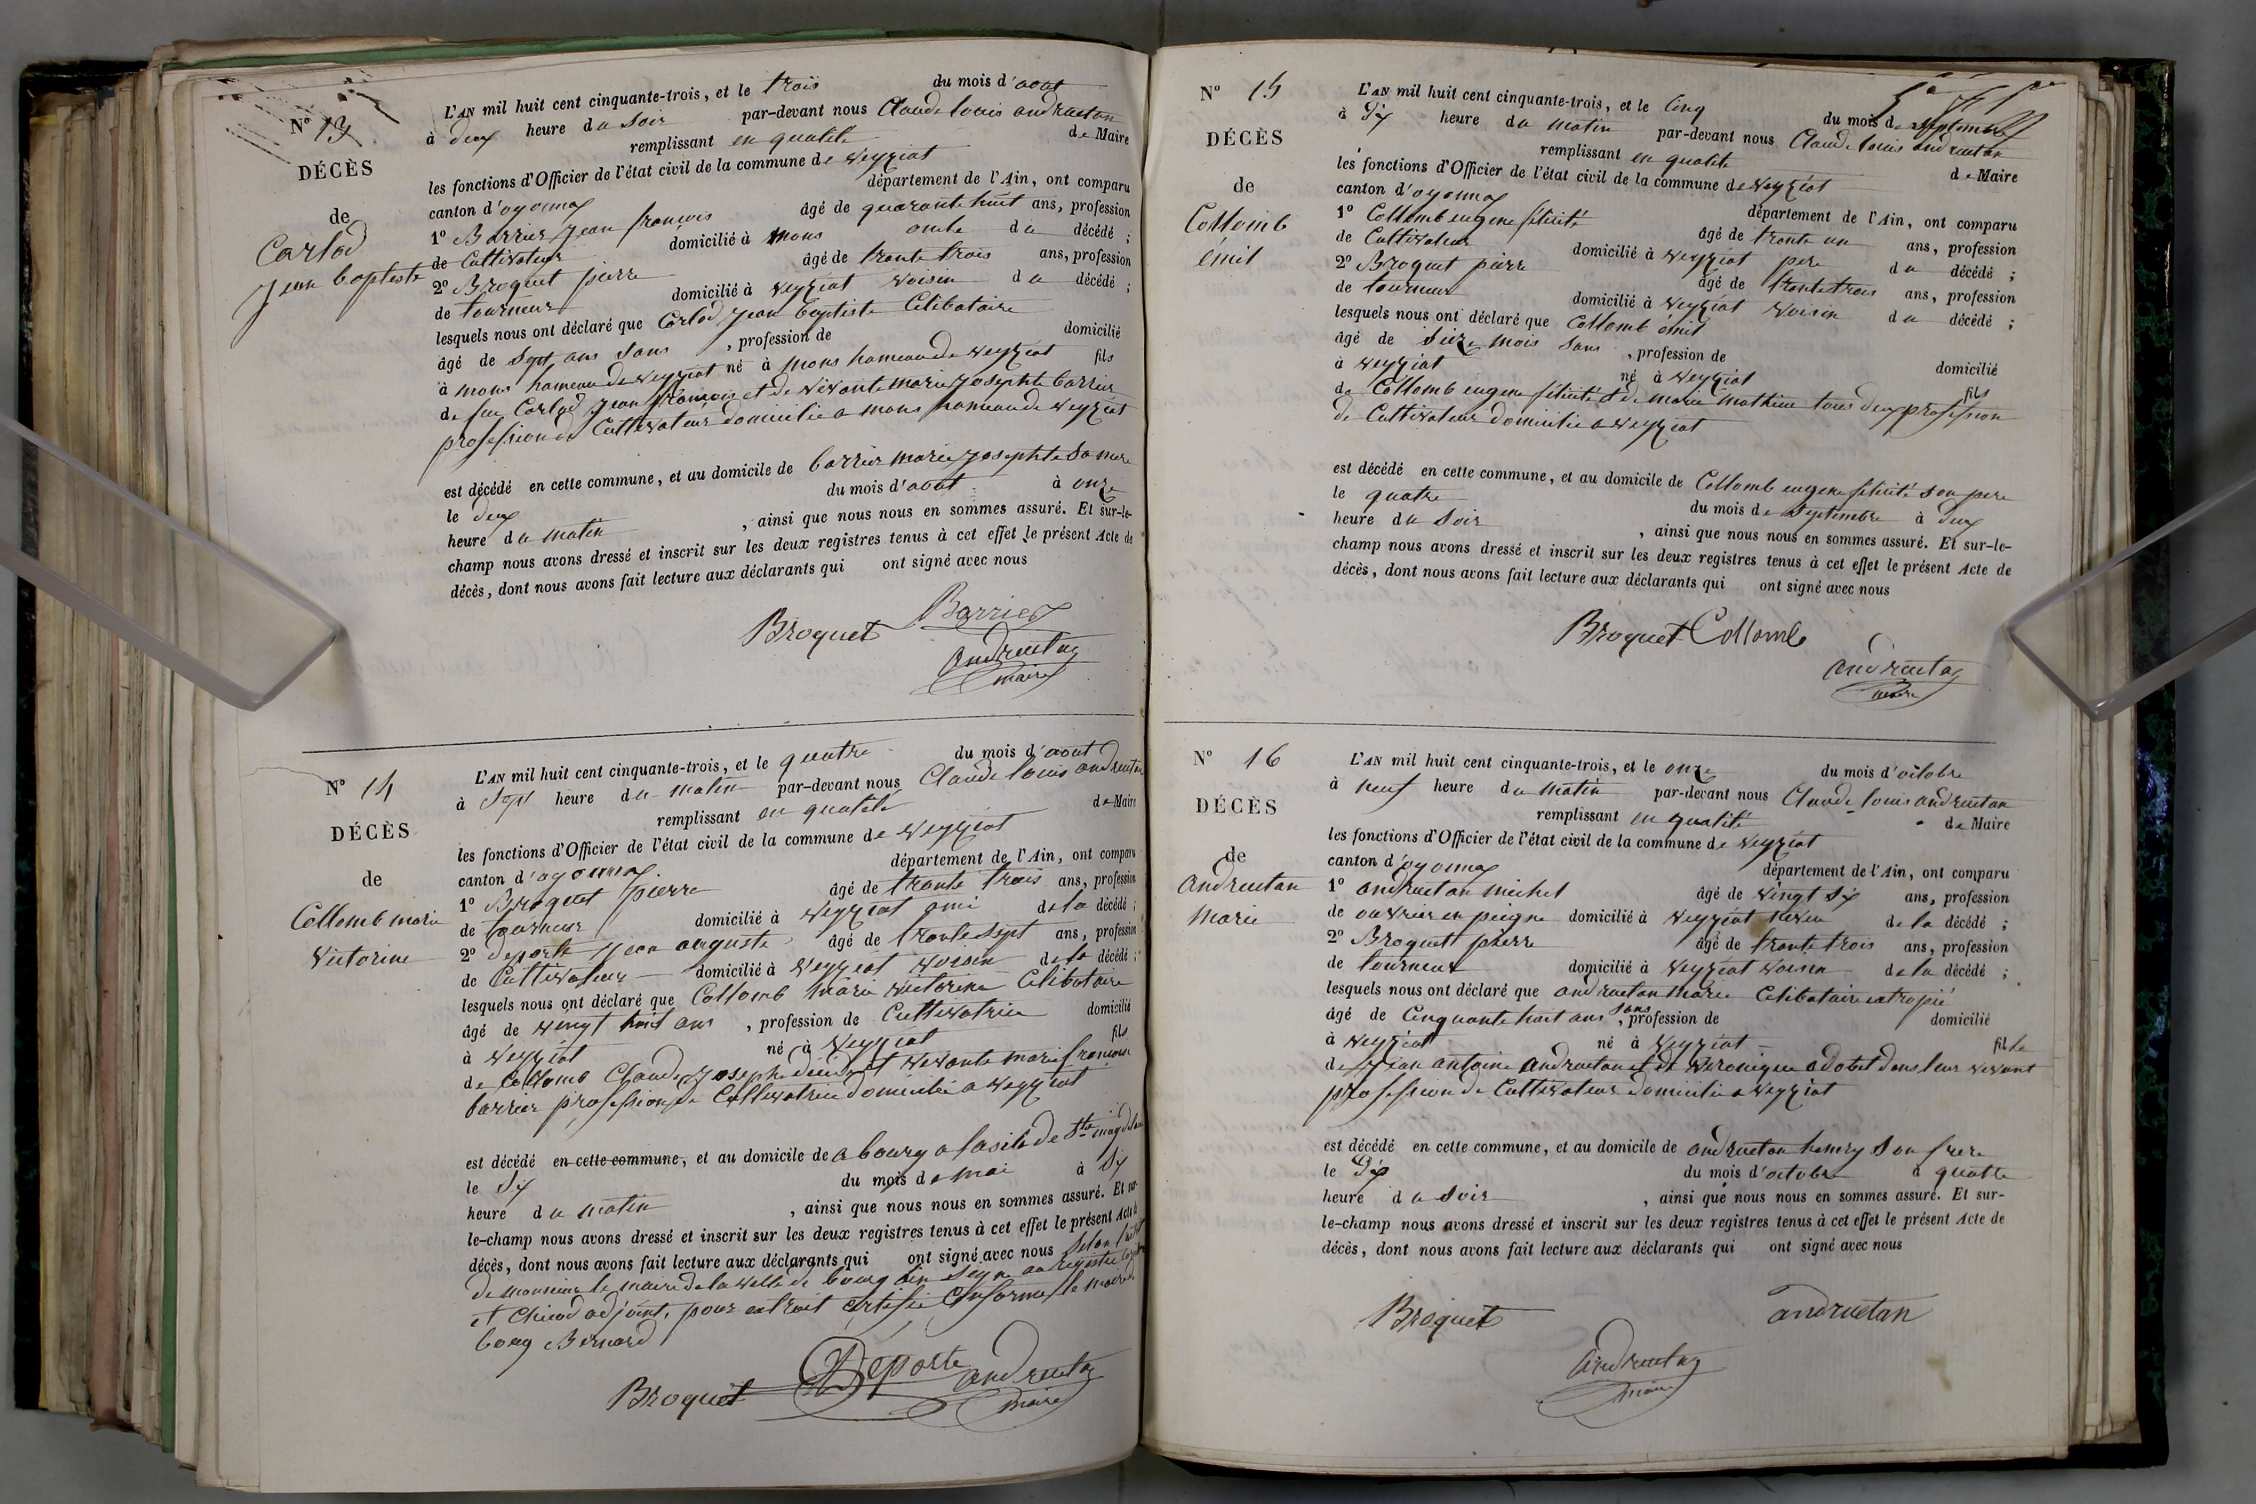 Nº 13
DÉCÈS
de
Carlod
Jean baptiste
L'AN mil huit cent cinquante-trois, et le trois du mois d'aout
à deux heure du soir par-devant nous Claude louis andruetan
remplissant en qualité de Maire
les fonctions d'Officier de l'état civil de la commune de veyziat
canton d'oyonnax département de l'Ain, ont comparu
1º Barrier jean françois âgé de quarante huit ans, profession
de Cultivateur domicilié à mons oncle du décédé ;
2º Broquet pierre âgé de trente trois ans, profession
de tourneur domicilié à veyziat voisin du décédé ;
lesquels nous ont déclaré que Carlod jean baptiste Célibataire
âgé de sept ans sans , profession de domicilié
à mons hameau de veyziat né à mons hameau de veyziat fils
de feu Carlod jean françois et de vivante marie josephte barrier
profession de Cultivateur domicilié a mons hameau de veyziat
est décédé en cette commune, et au domicile de barrier marie josephte sa mere
le deux du mois d'aout à onze
heure du matin , ainsi que nous nous en sommes assuré. Et sur-le-
champ nous avons dressé et inscrit sur les deux registres tenus à cet effet le présent Acte de
décès, dont nous avons fait lecture aux déclarants qui ont signé avec nous
Broquet Barrier
andruetan
maire
Nº 14
DÉCÈS
de
Collomb marie
victorine
L'AN mil huit cent cinquante-trois, et le quatre du mois d'aout
à sept heure du matin par-devant nous Claude louis andruetan
remplissant en qualité de Maire
les fonctions d'Officier de l'état civil de la commune de veyziat
canton d'oyonnax département de l'Ain, ont comparu
1º Broquet pierre âgé de trente trois ans, profession
de tourneur domicilié à veyziat ami de la décédé ;
2º deporte jean auguste âgé de trente sept ans, profession
de Cultivateur domicilié à veyziat voisin de la décédé ;
lesquels nous ont déclaré que Collomb marie victorine Célibataire
âgé de vingt huit ans , profession de Cultivatrice domicilié
à veyziat né à veyziat fils
de Collomb Claude joseph décédé et vivante marie françoise
barrier profession de Cultivatrice domicilié a veyziat
est décédé en cette commune, et au domicile de a bourg a lasile de Ste magdelaine
le six du mois de mai à six
heure du matin , ainsi que nous nous en sommes assuré. Et sur-
le-champ nous avons dressé et inscrit sur les deux registres tenus à cet effet le présent Acte de
décès, dont nous avons fait lecture aux déclarants qui ont signé avec nous selon
de monsieur le maire de la ville de bourg signé au registre
et adjoint, pour extrait certifié Conforme le maire de
bourg Bernard
Broquet Déporte andruetan
maire
Nº 15
DÉCÈS
de
Collomb
émil
L'AN mil huit cent cinquante-trois, et le cinq du mois de septembre
à dix heure du matin par-devant nous Claude louis andruetan
remplissant en qualité de Maire
les fonctions d'Officier de l'état civil de la commune de veyziat
canton d'oyonnax département de l'Ain, ont comparu
1º Collomb eugene félicité âgé de trente un ans, profession
de Cultivateur domicilié à veyziat pere du décédé ;
2º Broquet pierre âgé de trente trois ans, profession
de tourneur domicilié à veyziat voisin du décédé ;
lesquels nous ont déclaré que Collomb émil
âgé de seize mois sans , profession de domicilié
à veyziat né à veyziat fils
de Collomb eugene félicité & de marie mathieu tous deux profession
de Cultivateur domicilié a veyziat
est décédé en cette commune, et au domicile de Collomb eugene félicité son pere
le quatre du mois de septembre à deux
heure du soir , ainsi que nous nous en sommes assuré. Et sur-le-
champ nous avons dressé et inscrit sur les deux registres tenus à cet effet le présent Acte de
décès, dont nous avons fait lecture aux déclarants qui ont signé avec nous
Broquet Collomb
andruetan
maire
Nº 16
DÉCÈS
de
andruetan
marie
L'AN mil huit cent cinquante-trois, et le onze du mois d'octobre
à neuf heure du matin par-devant nous Claude louis andruetan
remplissant en qualité de Maire
les fonctions d'Officier de l'état civil de la commune de veyziat
canton d'oyonnax département de l'Ain, ont comparu
1º andruetan michel âgé de vingt six ans, profession
de ouvrier en peigne domicilié à veyziat neveu de la décédé ;
2º Broquet pierre âgé de trente trois ans, profession
de tourneur domicilié à veyziat voisin de la décédé ;
lesquels nous ont déclaré que andruetan marie Célibataire estropié
âgé de Cinquante huit ans sans , profession de domicilié
à veyziat né à veyziat fille
de jean antoine andruetan et de veronique odobet dans leur vivant
profession de Cultivateur domicilié a veyziat
est décédé en cette commune, et au domicile de andruetan henry son frere
le dix du mois d'octobre à quatre
heure du soir , ainsi que nous nous en sommes assuré. Et sur-
le-champ nous avons dressé et inscrit sur les deux registres tenus à cet effet le présent Acte de
décès, dont nous avons fait lecture aux déclarants qui ont signé avec nous
Broquet andruetan
andruetan
maire